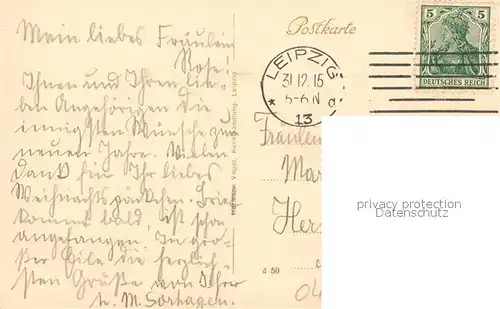 Mein liebes Fräulein
Rose.
Ihnen und Ihren lie-
ben Angehörigen die
innigsten Wünsche zum
neuen Jahre. Vielen
Dank für Ihr liebes
Weihnachtspäckchen.
kommt bald, ist schon
angefangen. In gro-
ßer Eile die herzlich-
sten Grüße von Ihrer
M. Sorhagen.
Postkarte
LEIPZIG
31.12.15
5-6 N
* 13 d
5 5
DEUTSCHES REICH
Hermann Vogel, Kunsthandlung, Leipzig
Fräulein
Mar
Hers
d 50
04
privacy protection
Datenschutz